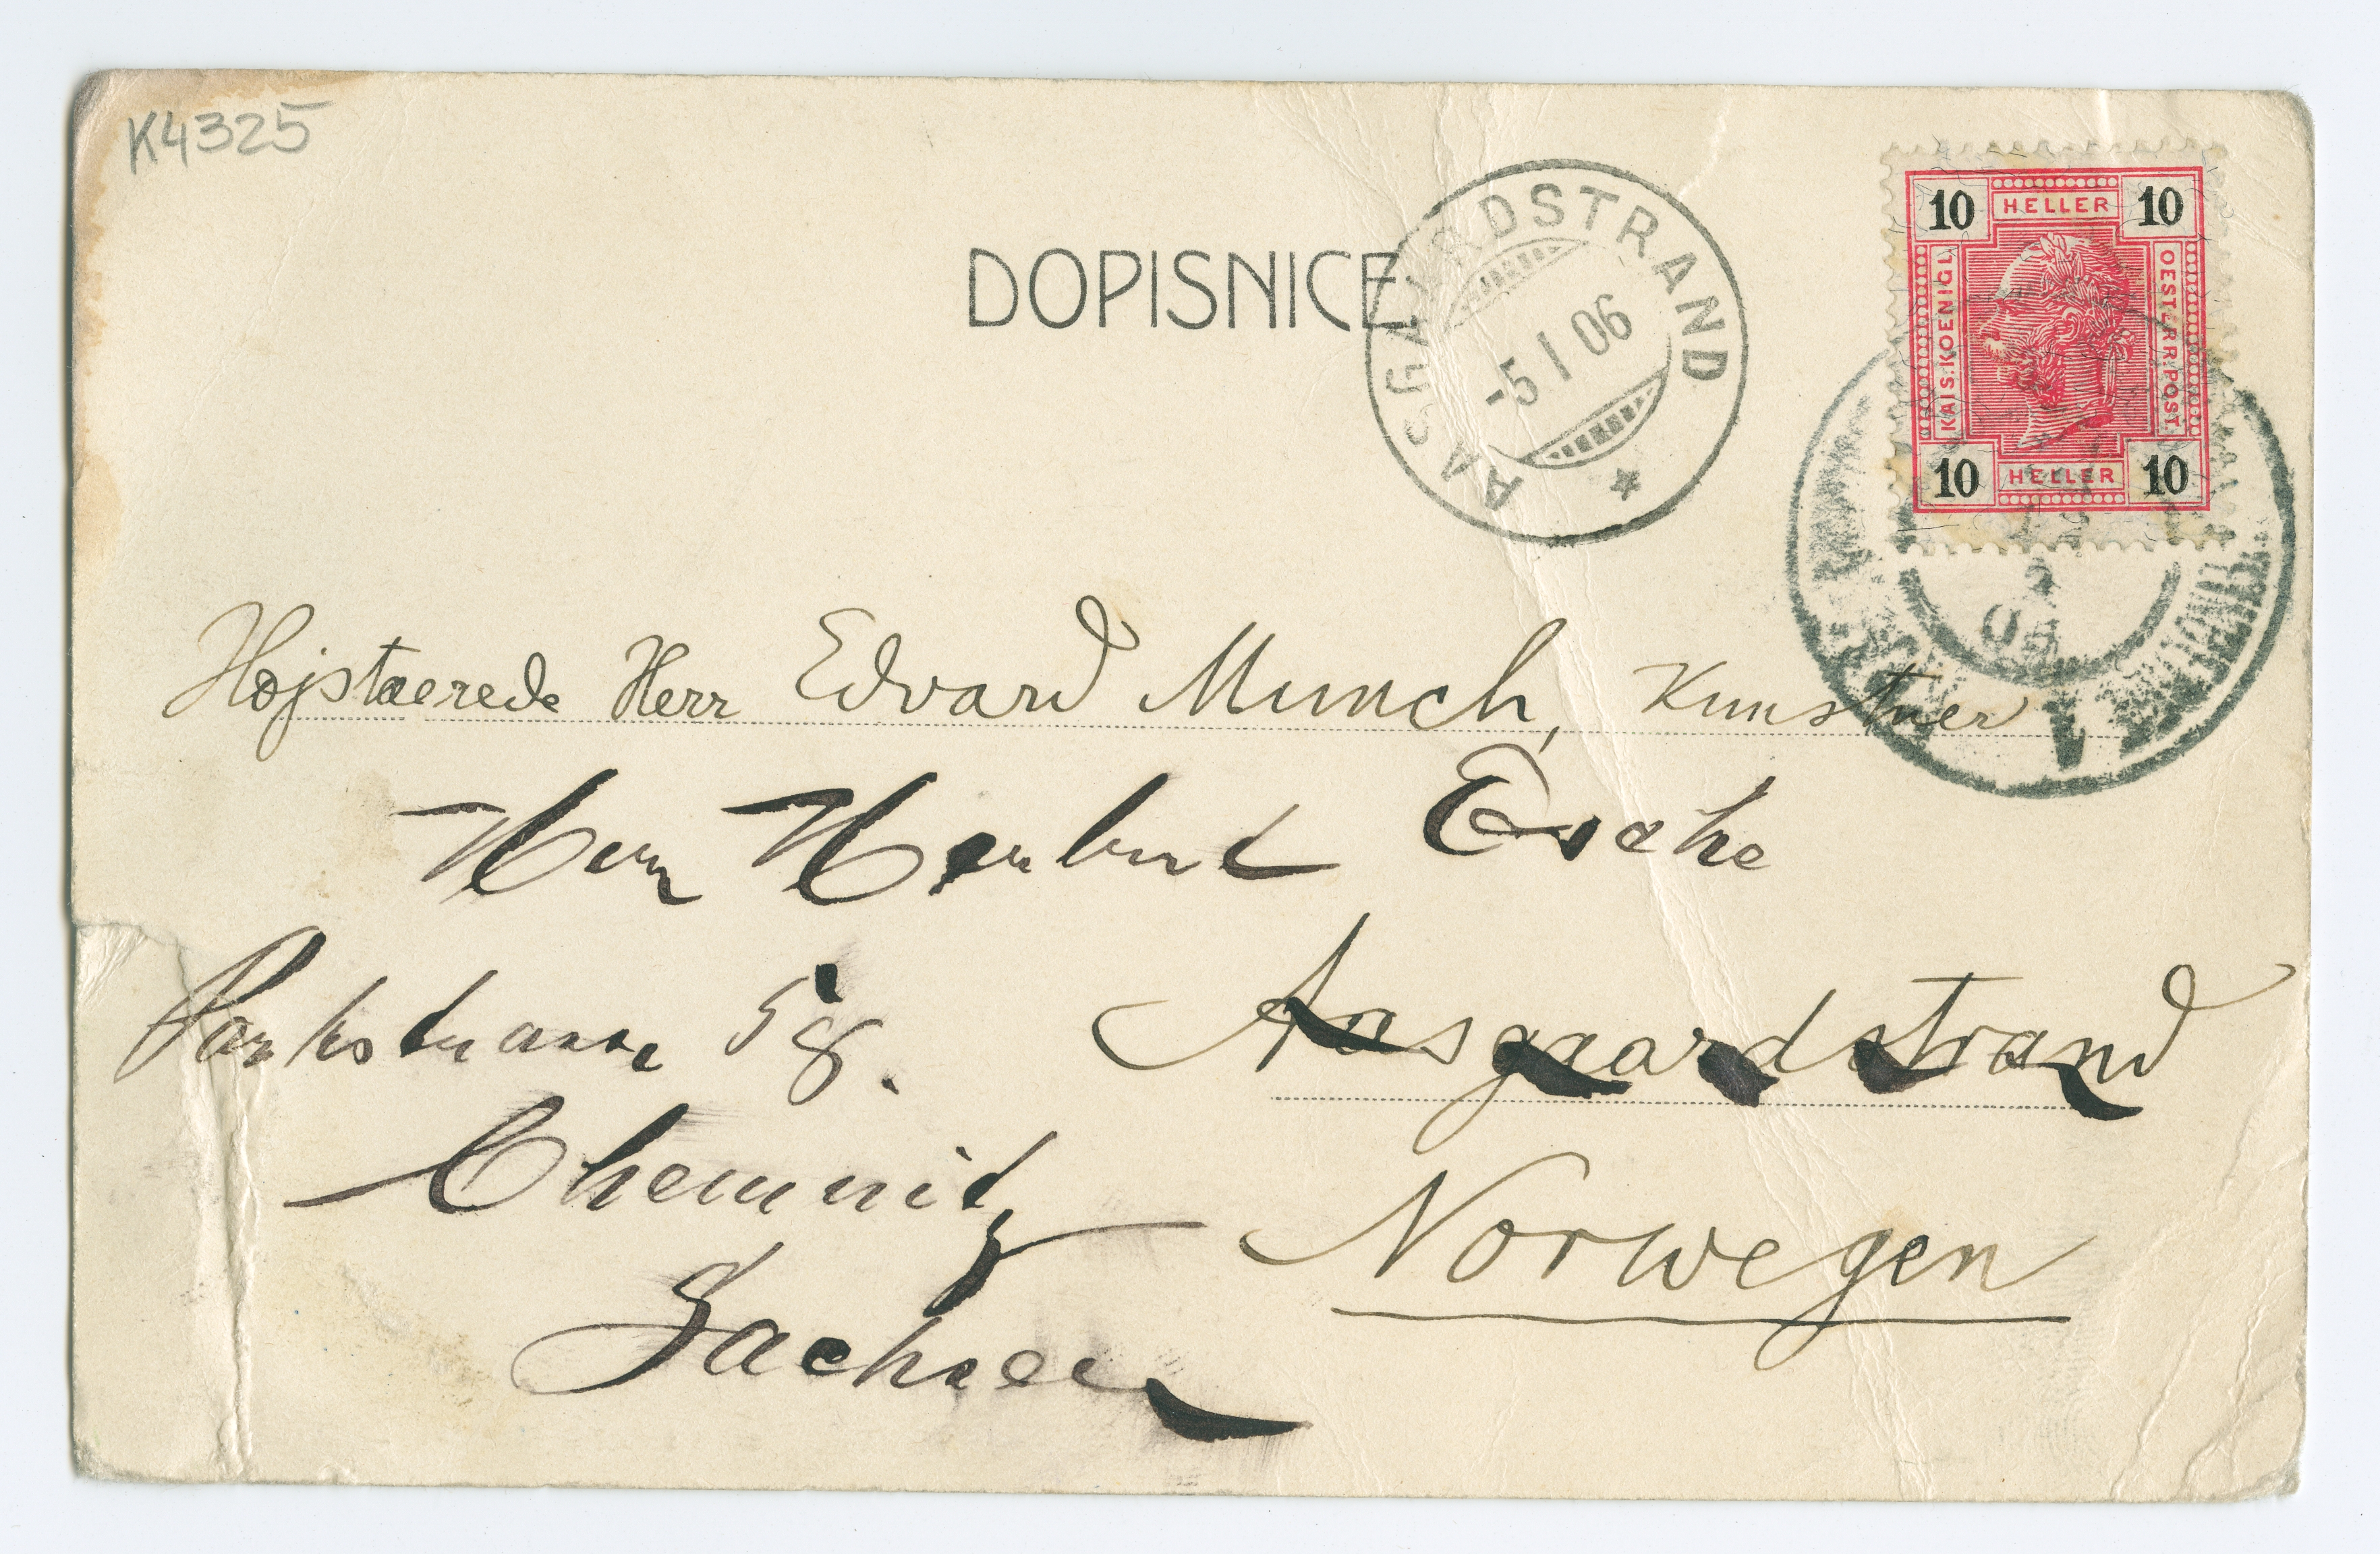 K4325
DOPISNICE
AASGAARDSTRAND
-5 I 06
10 HELLER 10
KAIS. KOENIGL.
OESTERR. POST.
10 HELLER 10
Højstærede Herr Edvard Munch, Kunstner
Herrn Herbert Esche
Parkstrasse 58.
Aasgaardstrand
Chemnitz
Norwegen
Sachsen